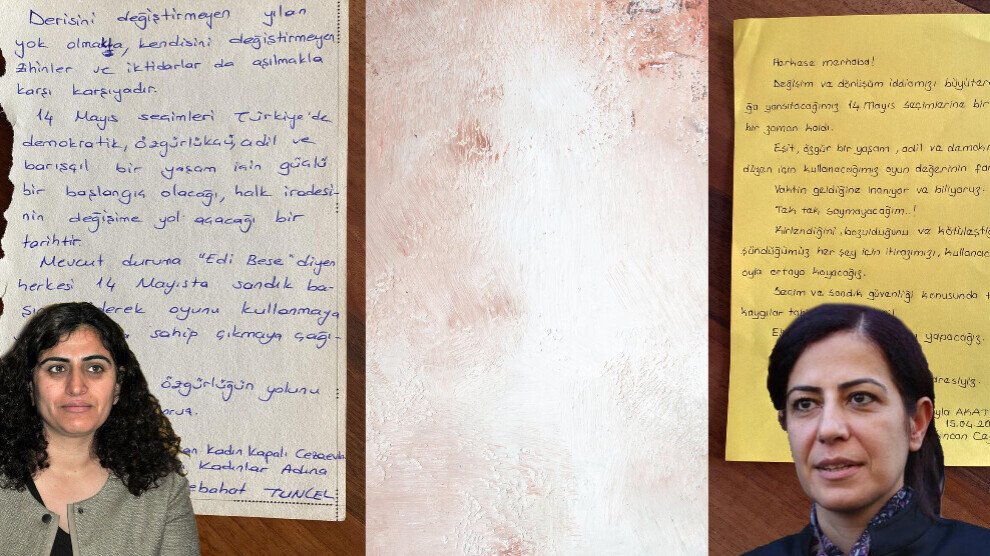 Derisini değiştirmeyen yılan
yok olmakta, kendisini değiştirmeyen
zihinler ve iktidarlar da aşılmakla
karşı karşıyadır.
14 Mayıs seçimleri Türkiye'de
demokratik, özgürlükçü, adil ve
barışçıl bir yaşam için güçlü
bir başlangıç olacağı, halk iradesi-
nin değişime yol açacağı bir
tarihtir.
Mevcut duruma "Edi Bese" diyen
herkesi 14 Mayısta sandık ba-
derek oyunu kullanmaya
sahip çıkmaya çağı-
özgürlüğün yolunu
Kadın Kapalı
Kadınlar Adına
ebahat TUNCEL
Herkese merhaba!
Değişim ve dönüşüm iddiamızı büyüter
ğa yansıtacağımız 14 Mayıs seçimlerine bir
bir zaman kaldı.
Eşit, özgür bir yaşam, adil ve demokr
düzen için kullanacağımız oyun değerinin far
Vaktin geldiğine inanıyor ve biliyoruz.
Tek tek saymayacağım..!
Kirlendiğini, bozulduğunu ve kötüleştiğ
şündüğümüz her şey için itirazımızı, kullanac
oyla ortaya koyacağız.
Seçim ve sandık güvenliği konusunda t
kaygılar
yapacağız.
aresiyiz.
yla AKAT
15.04.20
incan